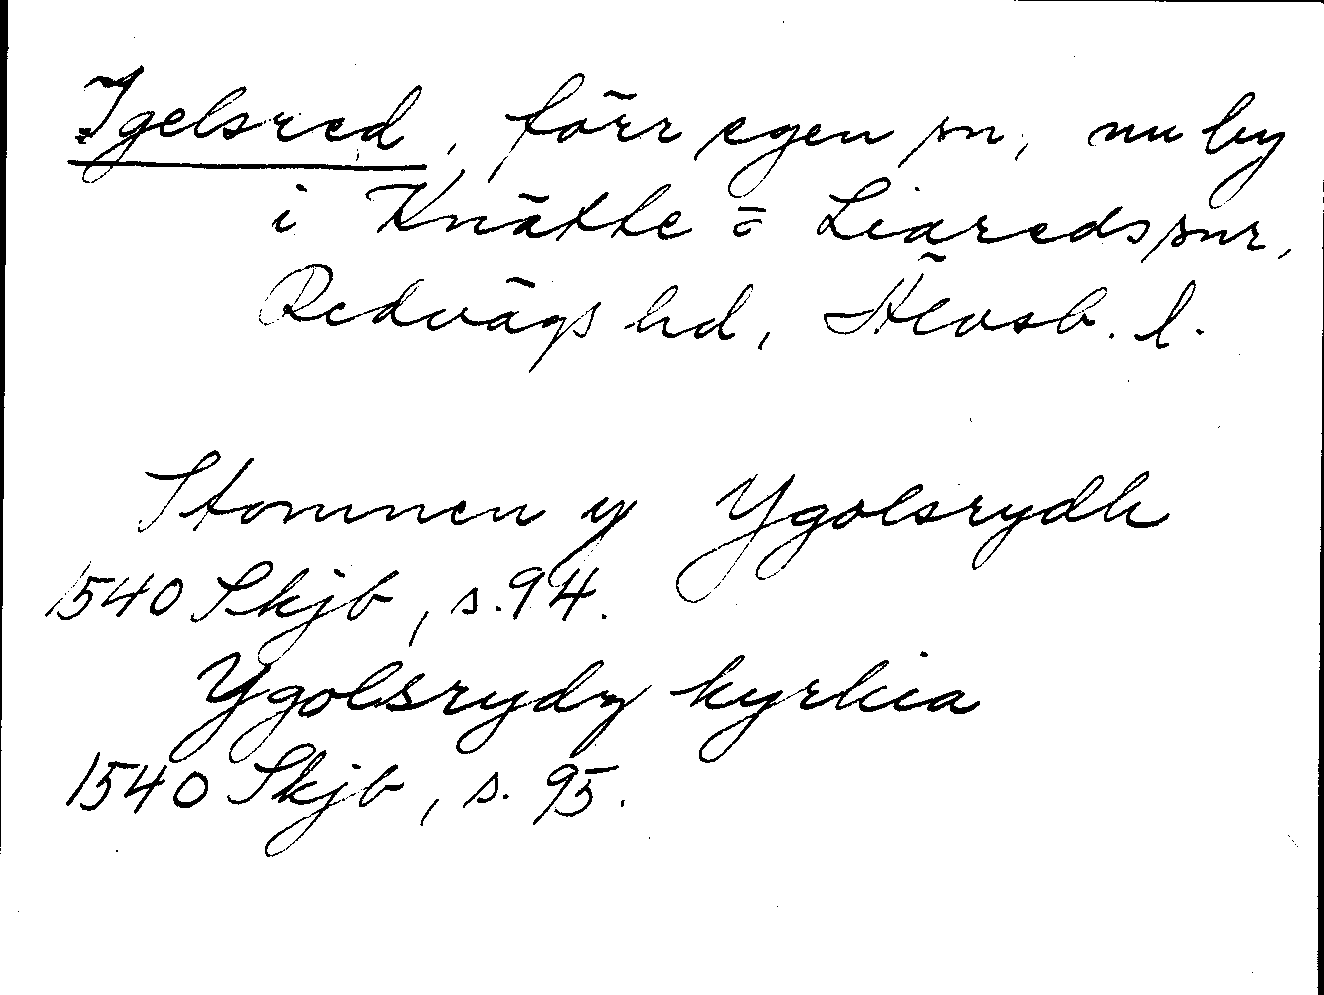 Igelsred, förr egen sn, nu by
i Knätte o Liareds snr,
Redvägs hd, Älvsb. l.
Stommen y Ygolsrydh
1540 Skjb, s. 94.
Ygolsrydz kyrkia
1540 Skjb, s. 95.